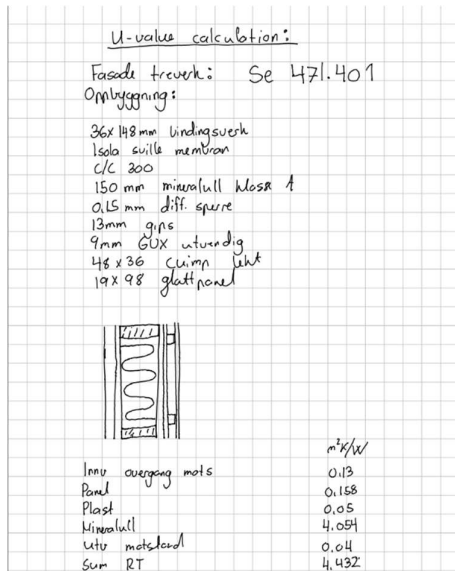 U-value calculation:
Fasade treverk: Se 471.401
Ombygging:
36x148 mm bindingsverk
Isola sville membran
C/C 300
150 mm mineralull klasse A
0,15 mm diff. sperre
13mm gips
9mm GUX utvendig
48 x 36 impr lekt
19x98 glattpanel
m²K/W
Innv overgang mots 0,13
Panel 0,158
Plast 0,05
Mineralull 4.054
utv motstand 0,04
Sum RT 4,432